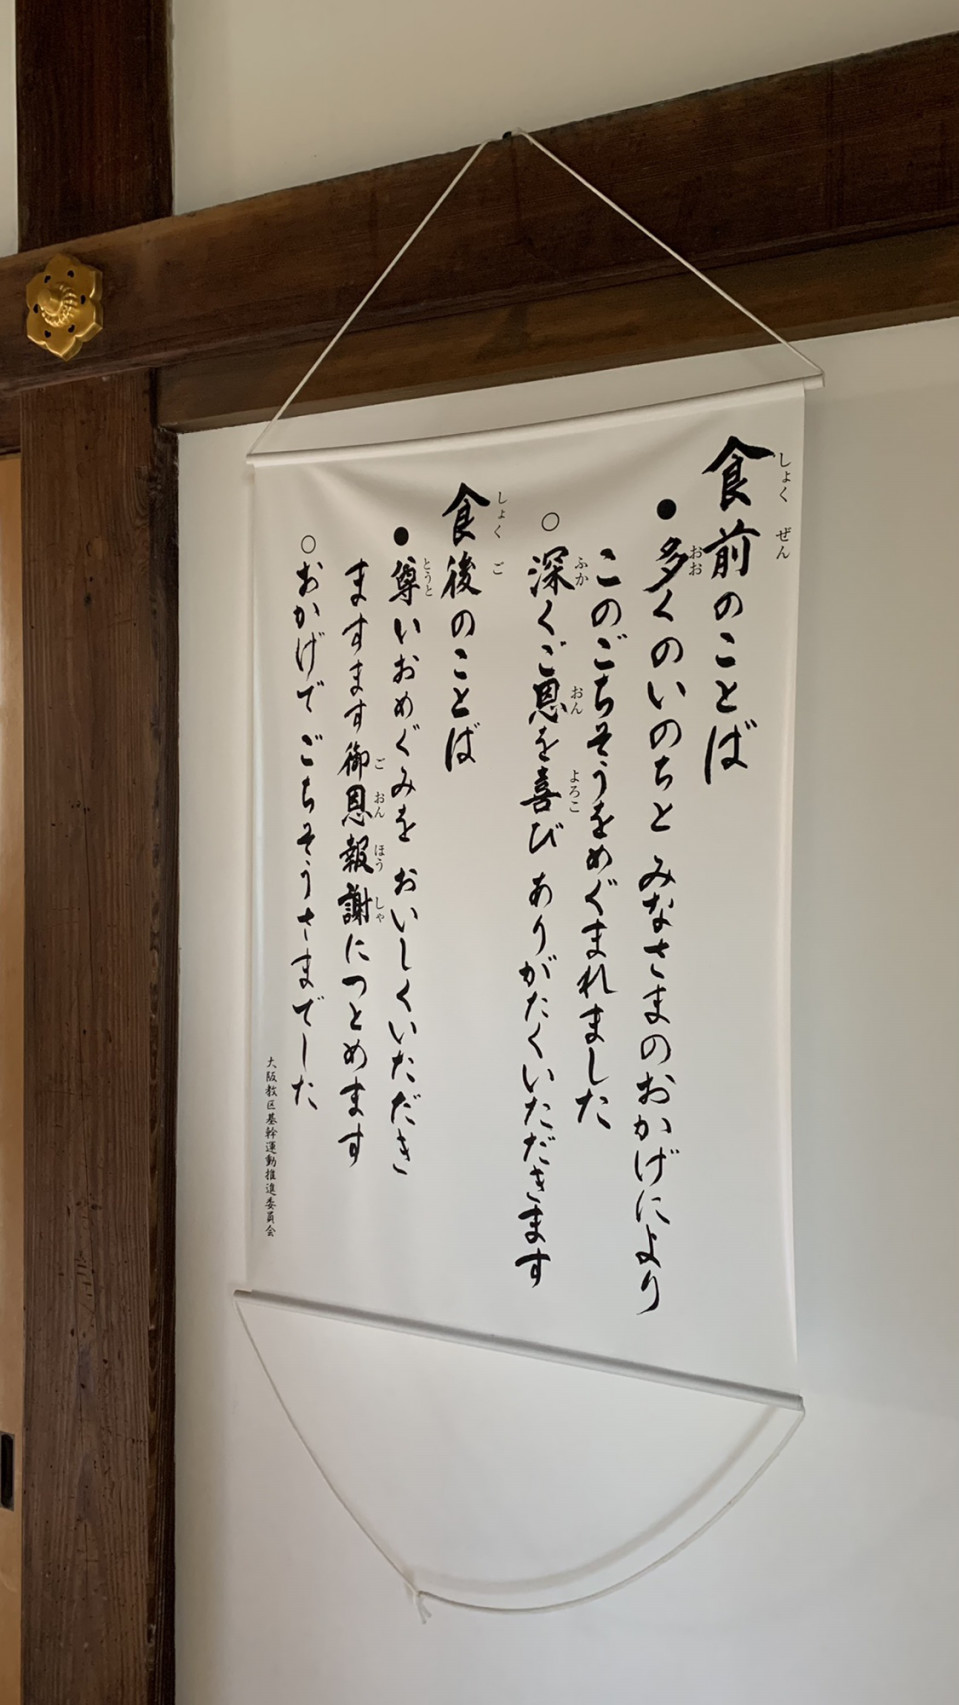 食前のことば
しょく ぜん
●多くのいのちと みなさまのおかげにより
おお
このごちそうをめぐまれました
○深くご恩を喜び ありがたくいただきます
ふか おん よろこ
食後のことば
しょく ご
●尊いおめぐみを おいしくいただき
とうと
ますます御恩報謝につとめます
ご おん ほう しゃ
○おかげで ごちそうさまでした
大阪教区基幹運動推進委員会